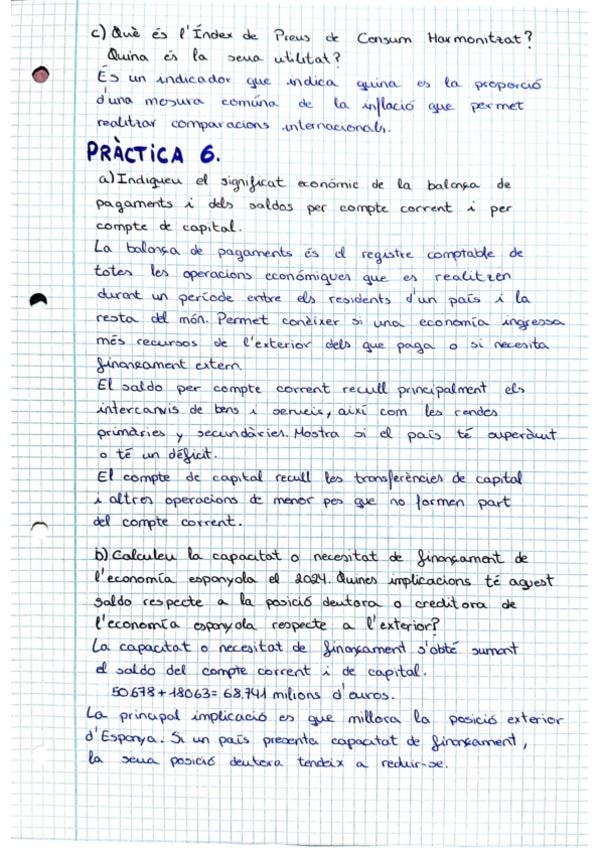 c) Què és l'Índex de Preus de Consum Harmonitzat?
Quina és la seua utilitat?
És un indicador que indica quina es la proporció
d'una mesura comúna de la inflació que permet
realitzar comparacions internacionals.
PRÀCTICA 6.
a) Indiqueu el significat económic de la balança de
pagaments i dels saldos per compte corrent i per
compte de capital.
La balança de pagaments és el registre comptable de
totes les operacions econòmiques que es realitzen
durant un període entre els residents d'un país i la
resta del món. Permet conèixer si una economía ingressa
més recursos de l'exterior dels que paga o si necesita
finançament extern.
El saldo per compte corrent recull principalment els
intercanvis de bens i serveis, així com les rendes
primàries y secundàries. Mostra si el país té superàvit
o té un déficit.
El compte de capital recull les transferències de capital
i altres operacions de menor pes que no formen part
del compte corrent.
b) Calculeu la capacitat o necesitat de finançament de
l'economía espanyola el 2024. Quines implicacions té aquest
saldo respecte a la posició deutora o creditora de
l'economía espanyola respecte a l'exterior?
La capacitat o necesitat de finançament s'obté sumant
el saldo del compte corrent i de capital.
50.678 + 18063 = 68.741 milions d'euros.
La principal implicació es que millora la posició exterior
d'Espanya. Si un país presenta capacitat de finançament,
la seua posició deutora tendeix a reduir-se.